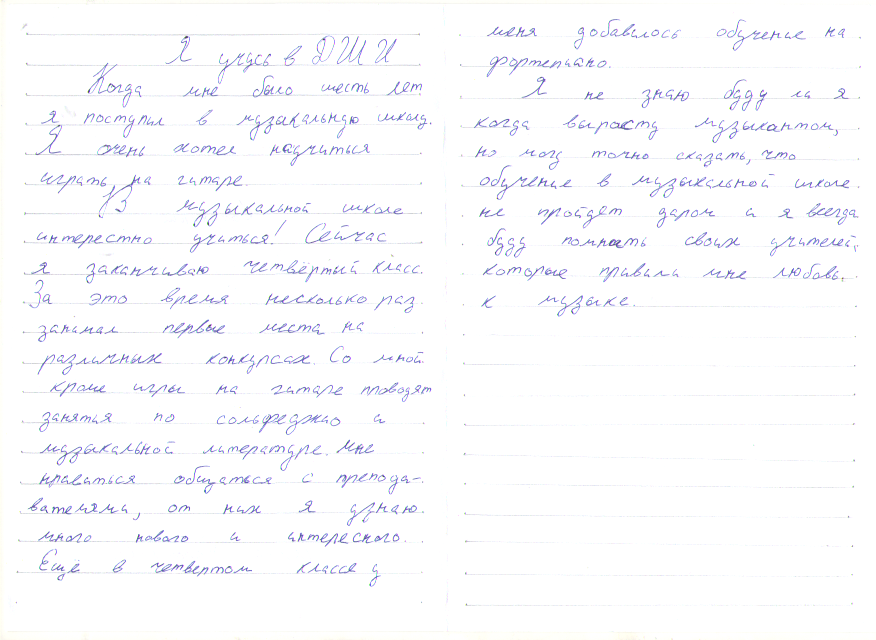 Я учусь в ДШИ
Когда мне было шесть лет
я поступил в музыкальную школу.
Я очень хотел научиться
играть на гитаре.
В музыкальной школе
интерестно учиться! Сейчас
я заканчиваю четвёртый класс.
За это время несколько раз
занимал первые места на
различных конкурсах. Со мной
кроме игры на гитаре проводят
занятия по сольфеджио и
музыкальной литературе. Мне
нравиться общаться с препода-
вателями, от них я узнаю
много нового и интересного.
Ещё в четвертом классе у
меня добавилось обучение на
фортепиано.
Я не знаю буду ли я
когда вырасту музыкантом,
но могу точно сказать, что
обучение в музыкальной школе
не пройдет даром и я всегда
буду помнить своих учителей,
которые привили мне любовь
к музыке.